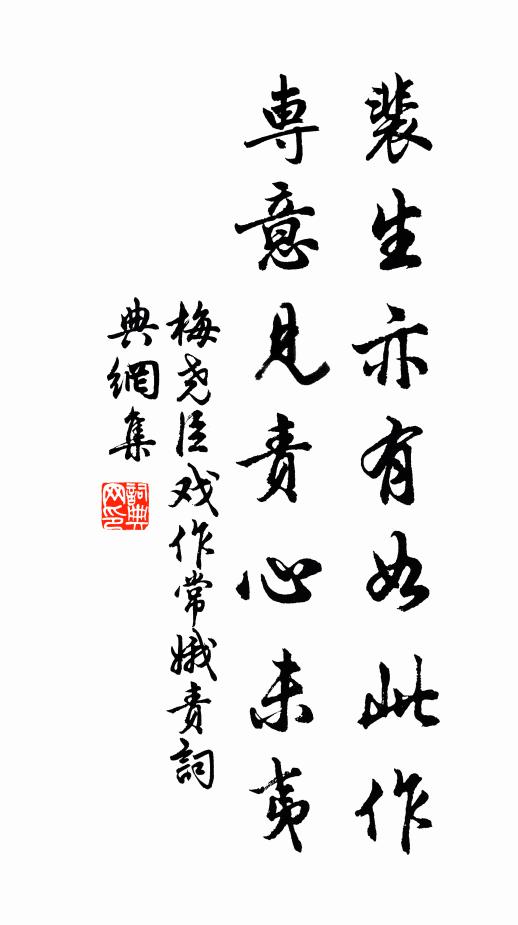 裴生亦有如此作
専意見責心未夷
梅尭臣戏作常娥責
詞
典網集
詞典
网印